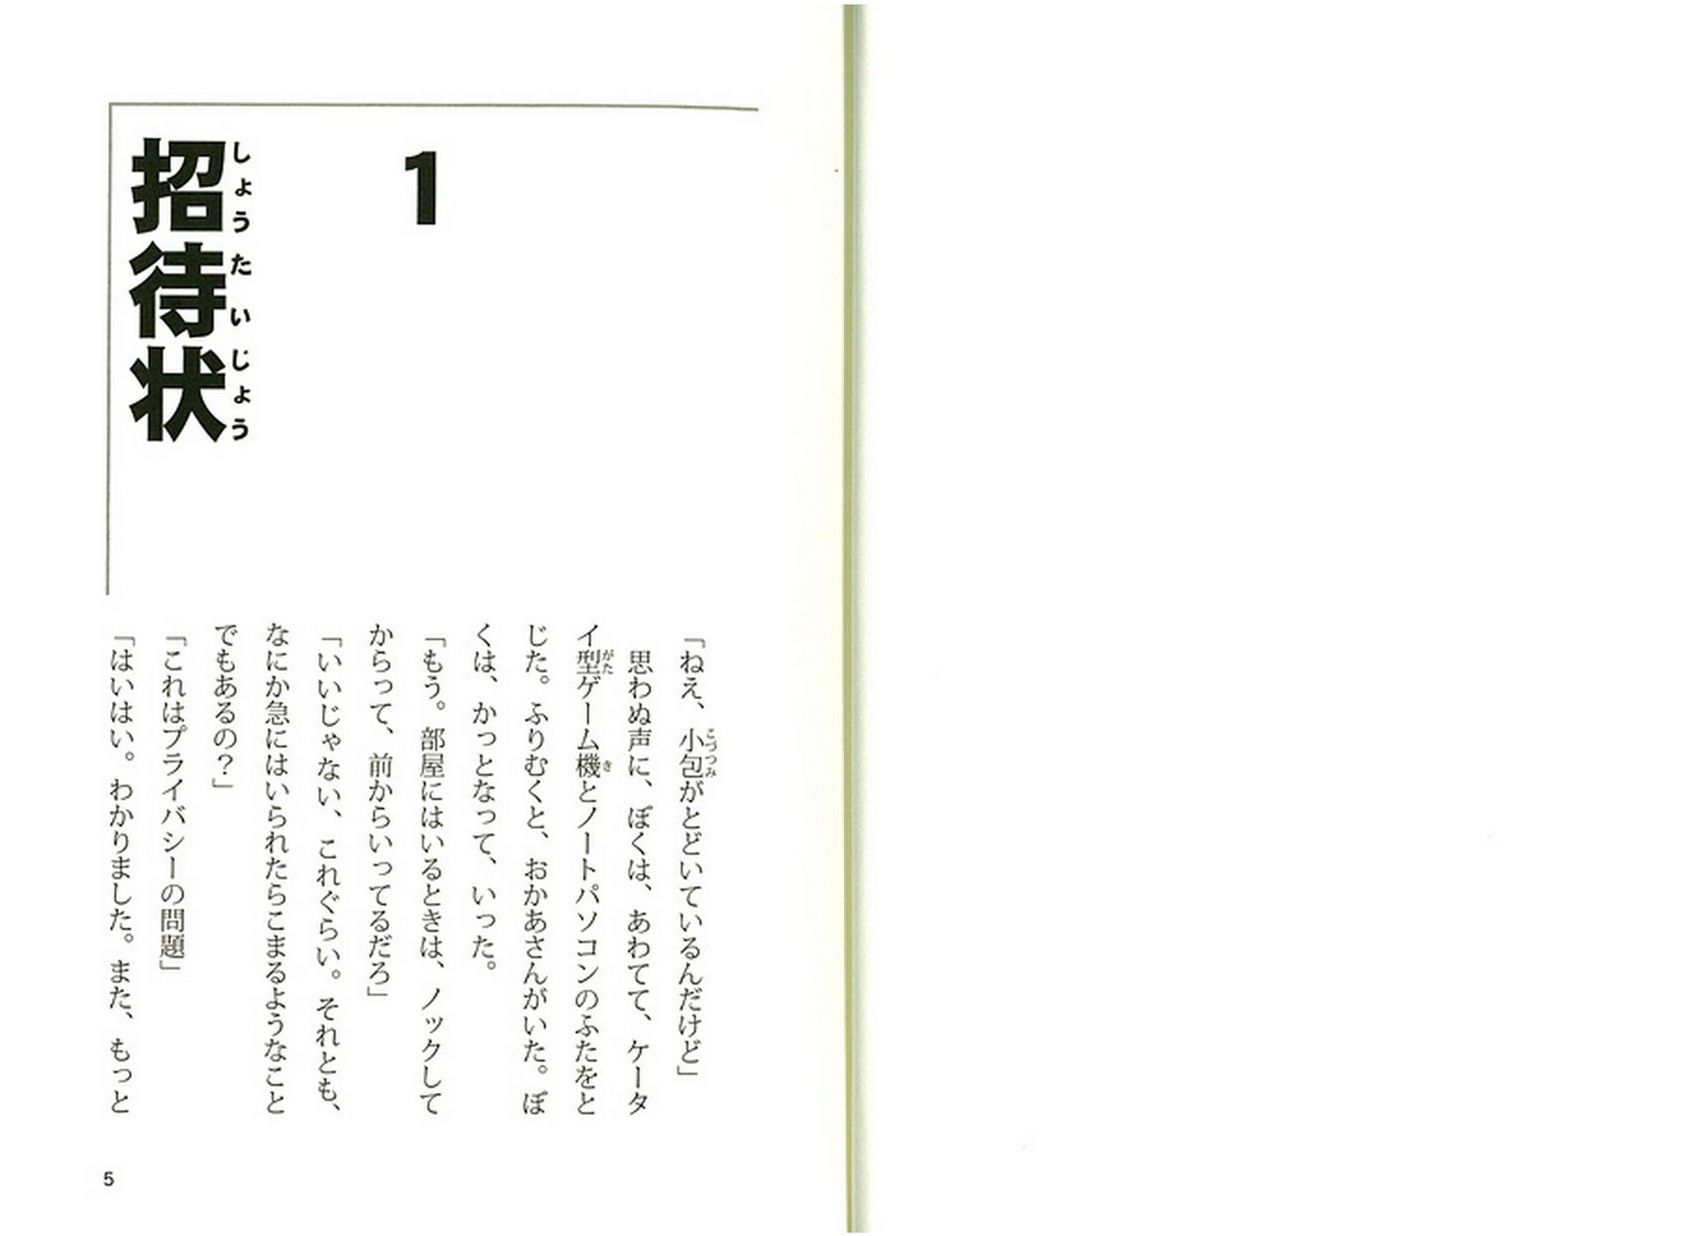 1
招待状
しょうたいじょう
「ねえ、小包がとどいているんだけど」
こづつみ
思わぬ声に、ぼくは、あわてて、ケータ
イ型ゲーム機とノートパソコンのふたをと
がた
き
じた。ふりむくと、おかあさんがいた。ぼ
くは、かっとなって、いった。
「もう。部屋にはいるときは、ノックして
からって、前からいってるだろ」
「いいじゃない、これぐらい。それとも、
なにか急にはいられたらこまるようなこと
でもあるの？」
「これはプライバシーの問題」
「はいはい。わかりました。また、もっと
5